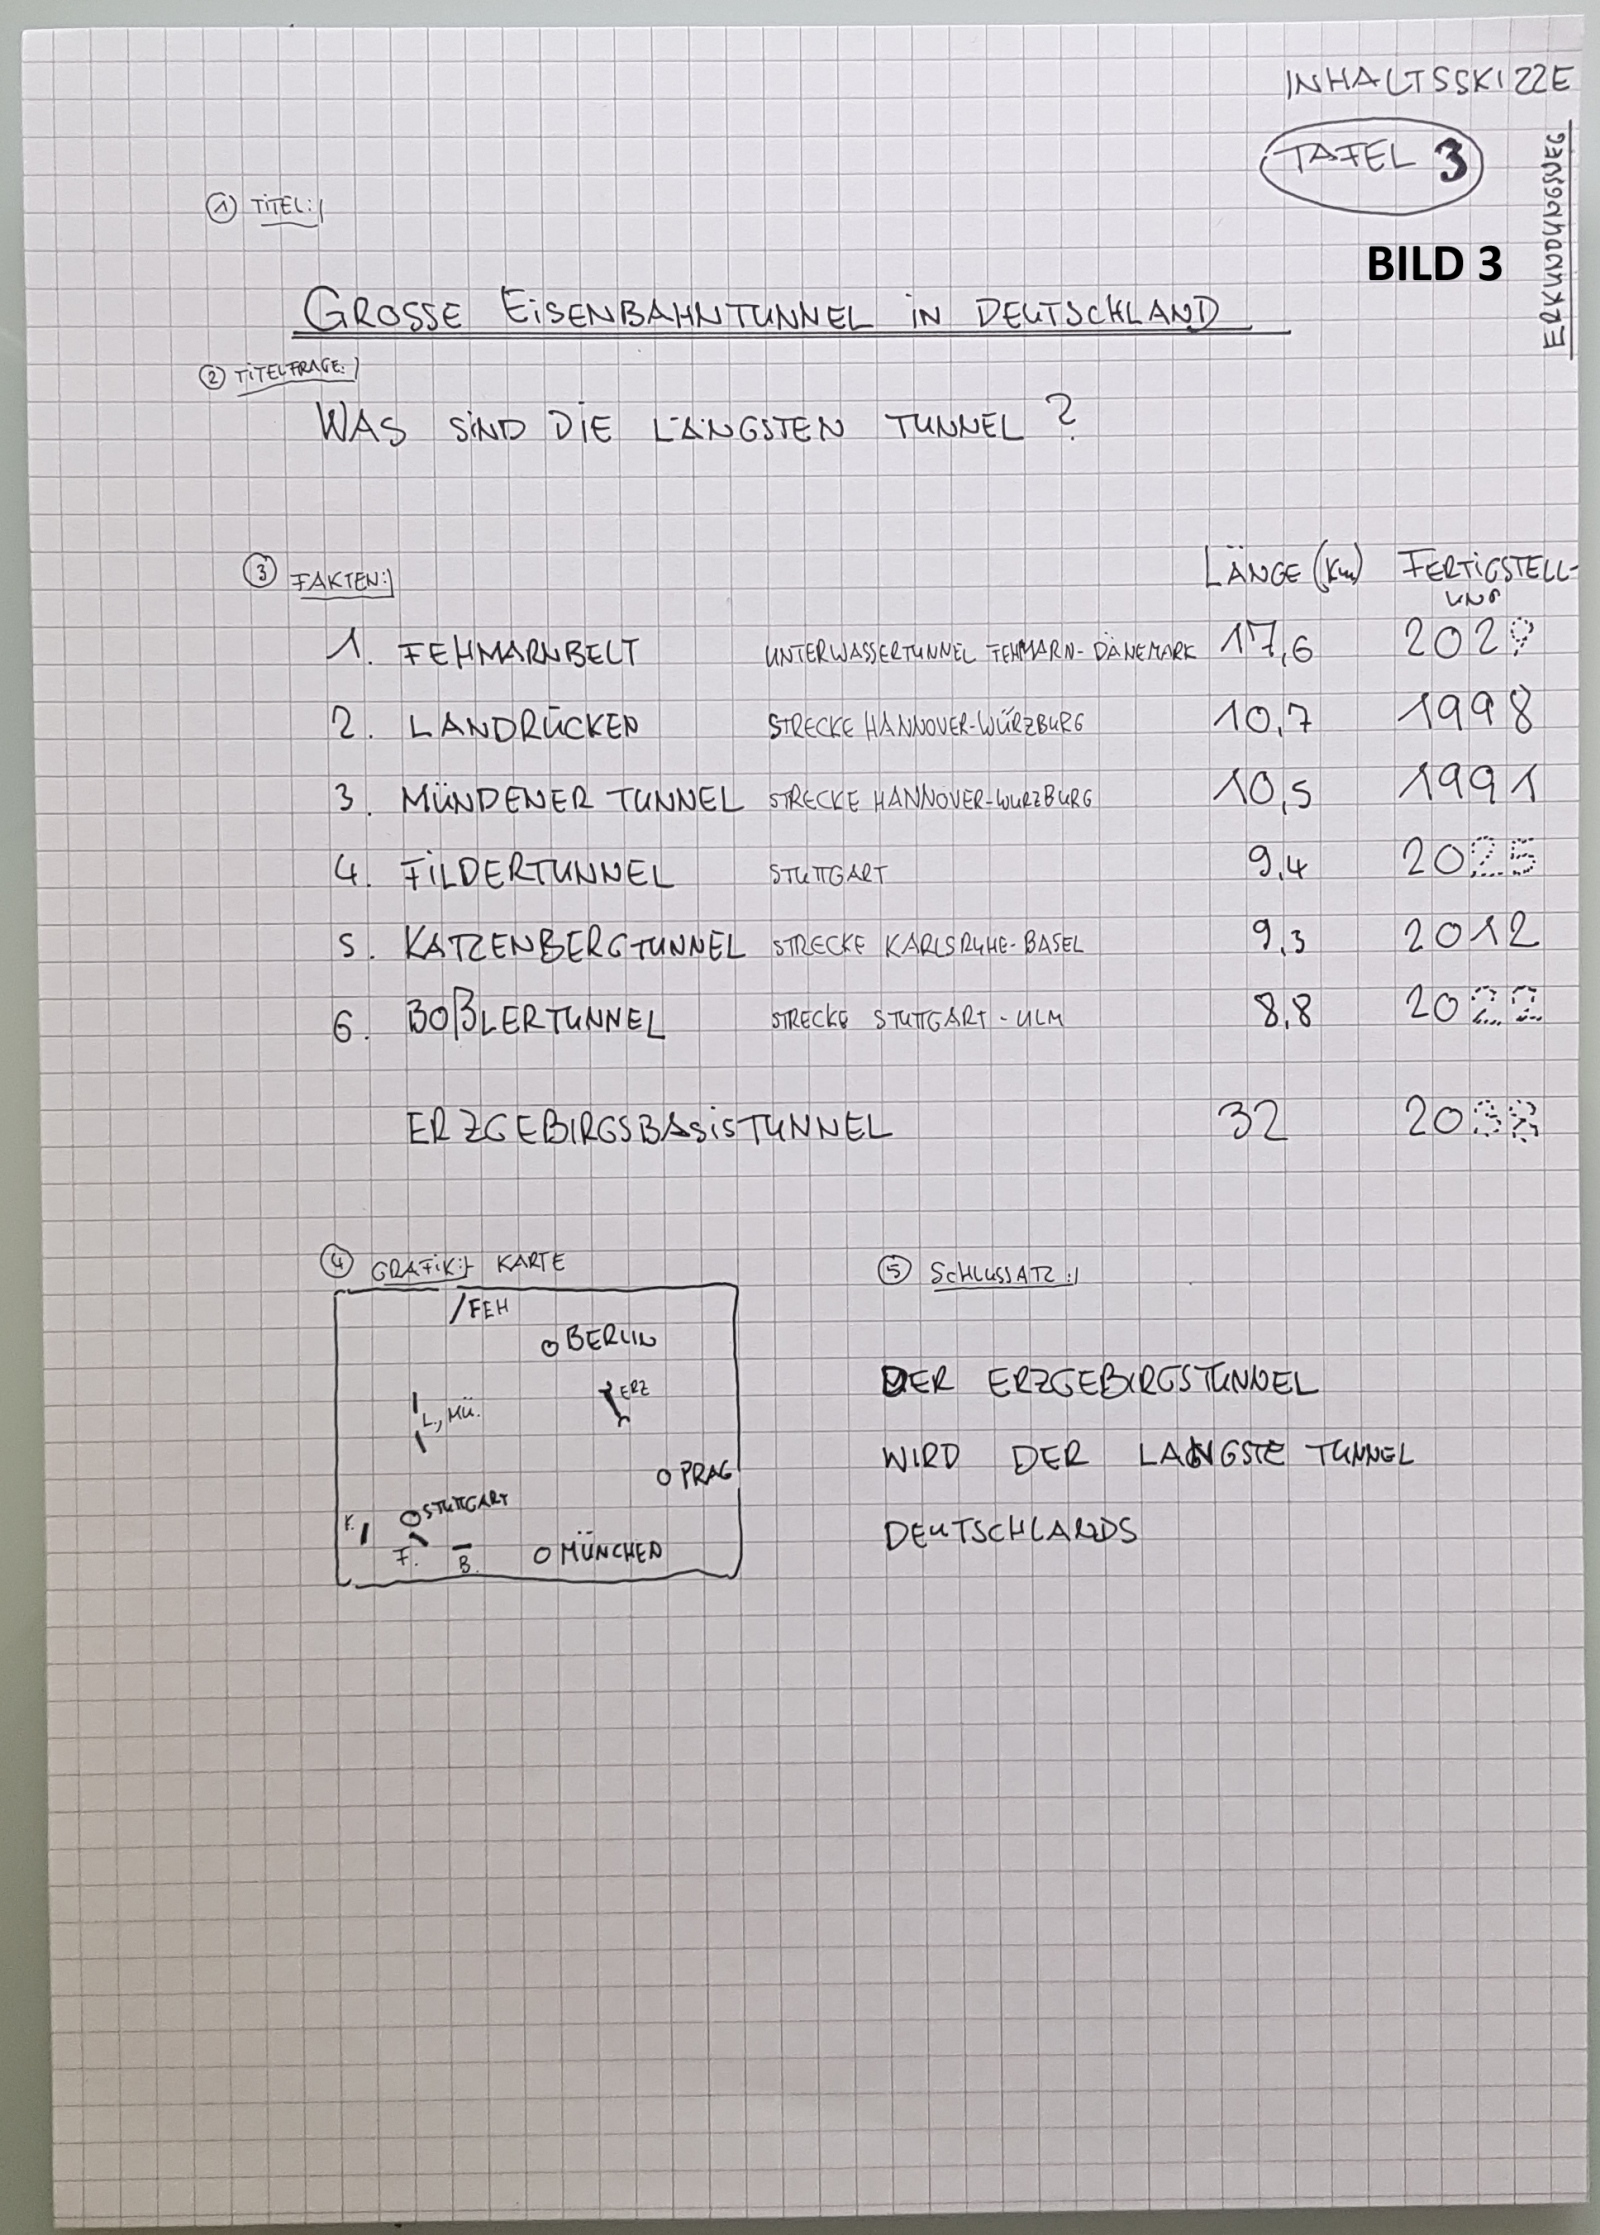 INHALTSSKIZZE
TAFEL 3
ERZKUNDUNGSWEG
BILD 3
① TITEL:
GROSSE EISENBAHNTUNNEL IN DEUTSCHLAND
② TITELFRAGE:
WAS SIND DIE LÄNGSTEN TUNNEL?
③ FAKTEN: LÄNGE (Km) FERTIGSTELL-
UNG
1. FEHMARNBELT UNTERWASSERTUNNEL FEHMARN-DÄNEMARK 17,6 202?
2. LANDRÜCKEN STRECKE HANNOVER-WÜRZBURG 10,7 1998
3. MÜNDENER TUNNEL STRECKE HANNOVER-WURZBURG 10,5 1991
4. FILDERTUNNEL STUTTGART 9,4 2025
5. KATZENBERGTUNNEL STRECKE KARLSRUHE-BASEL 9,3 2012
6. BOßLERTUNNEL STRECKE STUTTGART-ULM 8,8 2022
ERZGEBIRGSBASISTUNNEL 32 2038
④ GRAFIK: KARTE
/FEH
BERLIN
ERZ
L., MÜ.
PRAG
STUTTGART
K.
F.
B.
MÜNCHEN
⑤ SCHLUSSATZ:
DER ERZGEBIRGSTUNNEL
WIRD DER LANGSTE TUNNEL
DEUTSCHLANDS